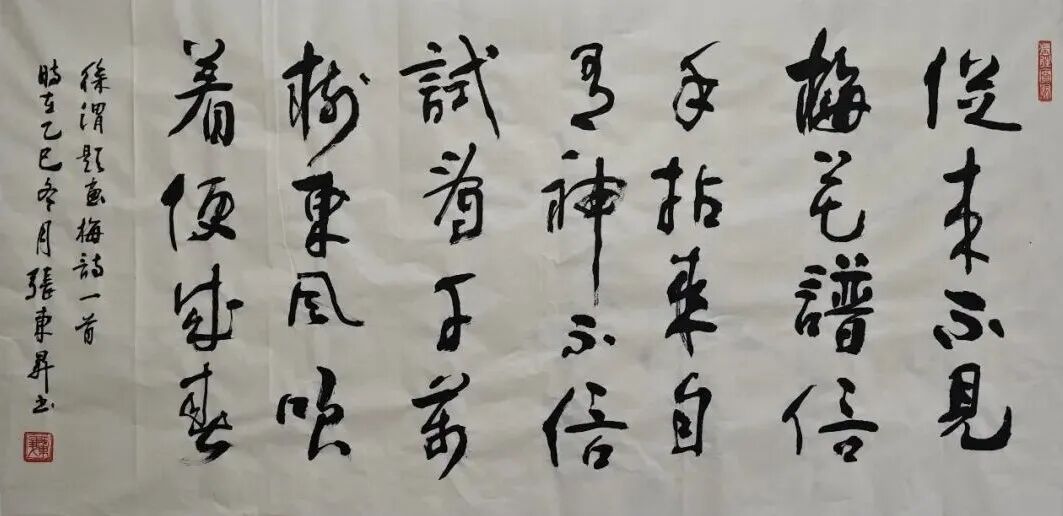 從來不見
梅花譜信
手拈來自
有神不信
試看千萬
樹東風吹
着便成春
徐渭題畫梅詩一首
時在乙巳冬月張東昇書